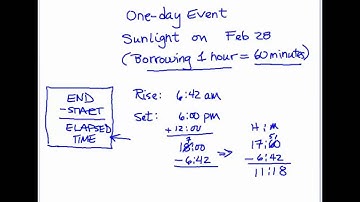 One-day Event
Sunlight on Feb 28
(Borrowing 1 hour = 60 minutes)
END
- START
ELAPSED
TIME
Rise: 6:42 am
Set: 6:00 pm
+ 12:00
18:00
- 6:42
⇒
H : m
17:60
- 6:42
11:18